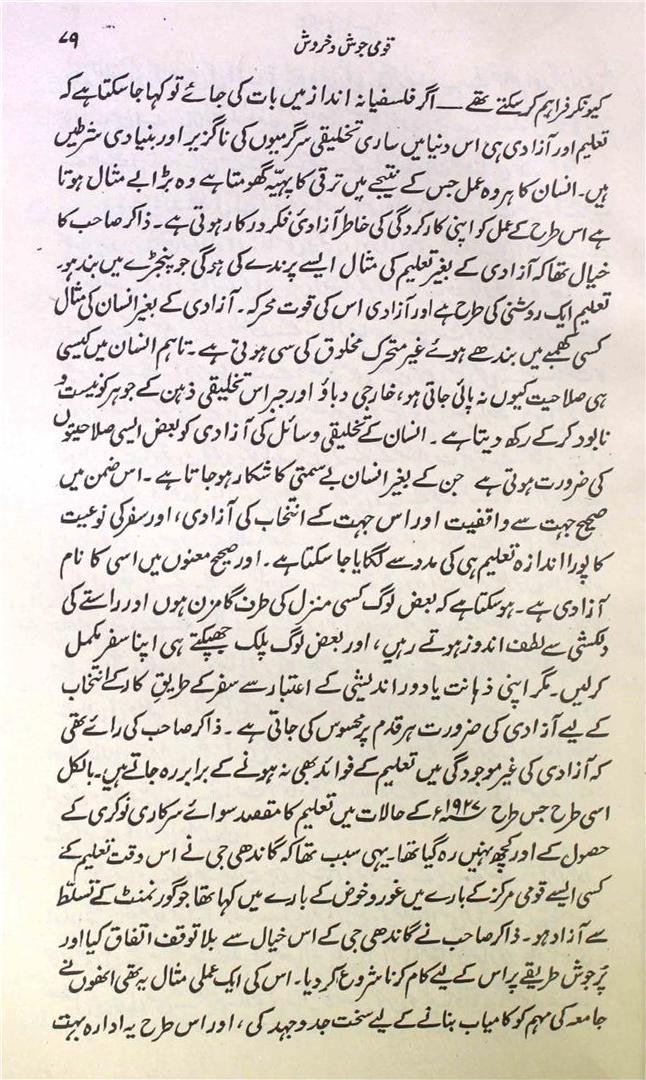 قومی جوش و خروش
۷۹
کیونکر فراہم کر سکتے تھے — اگر فلسفیانہ انداز میں بات کی جائے تو کہا جا سکتا ہے کہ
تعلیم اور آزادی ہی اس دنیا میں ساری تخلیقی سرگرمیوں کی ناگزیر اور بنیادی شرطیں
ہیں۔ انسان کا ہر وہ عمل جس کے نتیجے میں ترقی کا پہیّہ گھومتا ہے وہ بڑا بے مثال ہوتا
ہے اس طرح کے عمل کو اپنی کارکردگی کی خاطر آزادیٔ فکر درکار ہوتی ہے۔ ذاکر صاحب کا
خیال تھا کہ آزادی کے بغیر تعلیم کی مثال ایسے پرندے کی ہوگی جو پنجڑے میں بند ہو۔
تعلیم ایک روشنی کی طرح ہے اور آزادی اس کی قوت محرکہ۔ آزادی کے بغیر انسان کی مثال
کسی کھمبے میں بندھے ہوئے غیر متحرک مخلوق کی سی ہوتی ہے۔ تاہم انسان میں کیسی
ہی صلاحیت کیوں نہ پائی جاتی ہو، خارجی دباؤ اور جبر اس تخلیقی ذہن کے جوہر کو نیست و
نابود کر کے رکھ دیتا ہے۔ انسان کے تخلیقی وسائل کی آزادی کو بعض ایسی صلاحیتوں
کی ضرورت ہوتی ہے جن کے بغیر انسان بے سمتی کا شکار ہو جاتا ہے۔ اس ضمن میں
صحیح جہت سے واقفیت اور اس جہت کے انتخاب کی آزادی، اور سفر کی نوعیت
کا پورا اندازہ تعلیم ہی کی مدد سے لگایا جا سکتا ہے۔ اور صحیح معنوں میں اسی کا نام
آزادی ہے۔ ہو سکتا ہے کہ بعض لوگ کسی منزل کی طرف گامزن ہوں اور راستے کی
دلکشی سے لطف اندوز ہوتے رہیں، اور بعض لوگ پلک جھپکتے ہی اپنا سفر مکمل
کر لیں۔ مگر اپنی ذہانت یا دور اندیشی کے اعتبار سے سفر کے طریقِ کار کے انتخاب
کے لیے آزادی کی ضرورت ہر قدم پر محسوس کی جاتی ہے۔ ذاکر صاحب کی رائے تھی
کہ آزادی کی غیر موجودگی میں تعلیم کے فوائد بھی نہ ہونے کے برابر رہ جاتے ہیں۔ بالکل
اسی طرح جس طرح ۱۹۲۷ء کے حالات میں تعلیم کا مقصد سوائے سرکاری نوکری کے
حصول کے اور کچھ نہیں رہ گیا تھا۔ یہی سبب تھا کہ گاندھی جی نے اس وقت تعلیم کے
کسی ایسے قومی مرکز کے بارے میں غور و خوض کے بارے میں کہا تھا جو گورنمنٹ کے تسلّط
سے آزاد ہو۔ ذاکر صاحب نے گاندھی جی کے اس خیال سے بلا توقف اتفاق کیا اور
پُرجوش طریقے پر اس کے لیے کام کرنا شروع کر دیا۔ اس کی ایک عملی مثال یہ تھی انھوں نے
جامعہ کی مہم کو کامیاب بنانے کے لیے سخت جدوجہد کی، اور اس طرح یہ ادارہ بہت